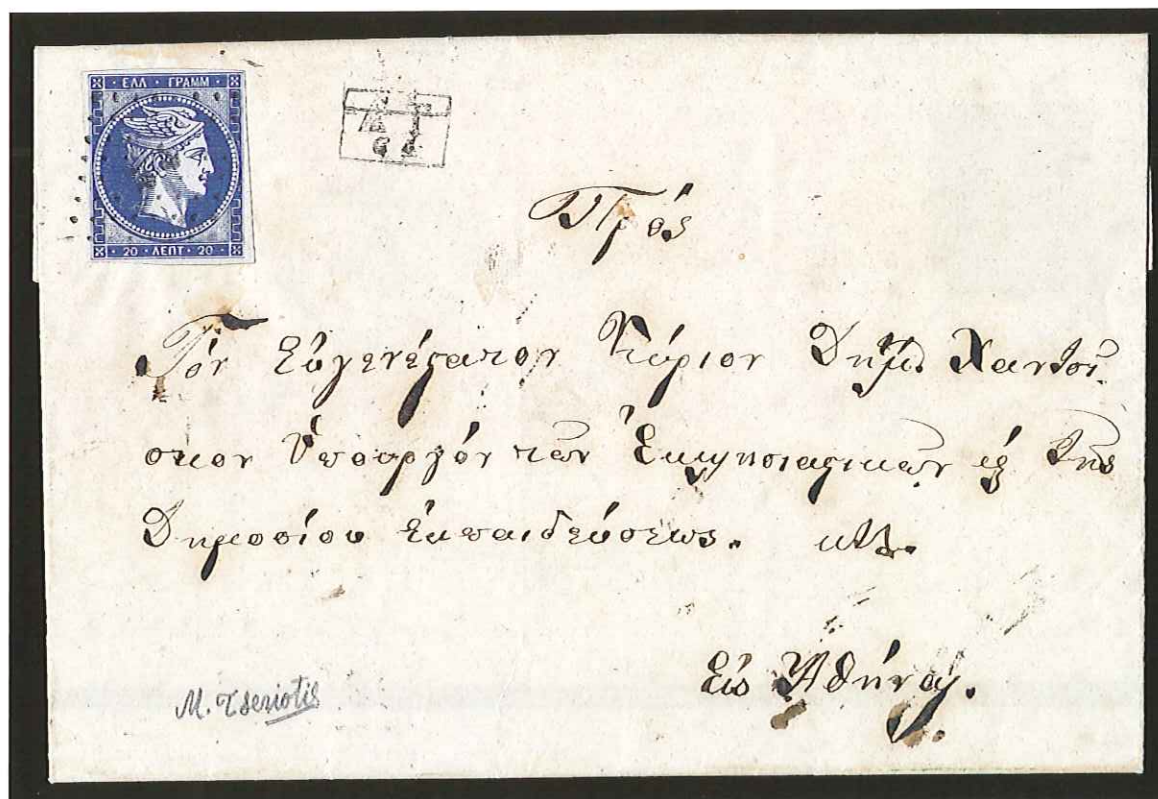 ΕΛΛ ΓΡΑΜΜ
20 ΛΕΠΤ 20
Πρός
Τόν Εὐγενέστατον Κύριον Δημ
Ὑπουργόν τῶν Ἐκκλησιαστικῶν καὶ τῆς
Δημοσίου Ἐκπαιδεύσεως. κτλ.
Εἰς Ἀθήνας.
M. Tseriotis